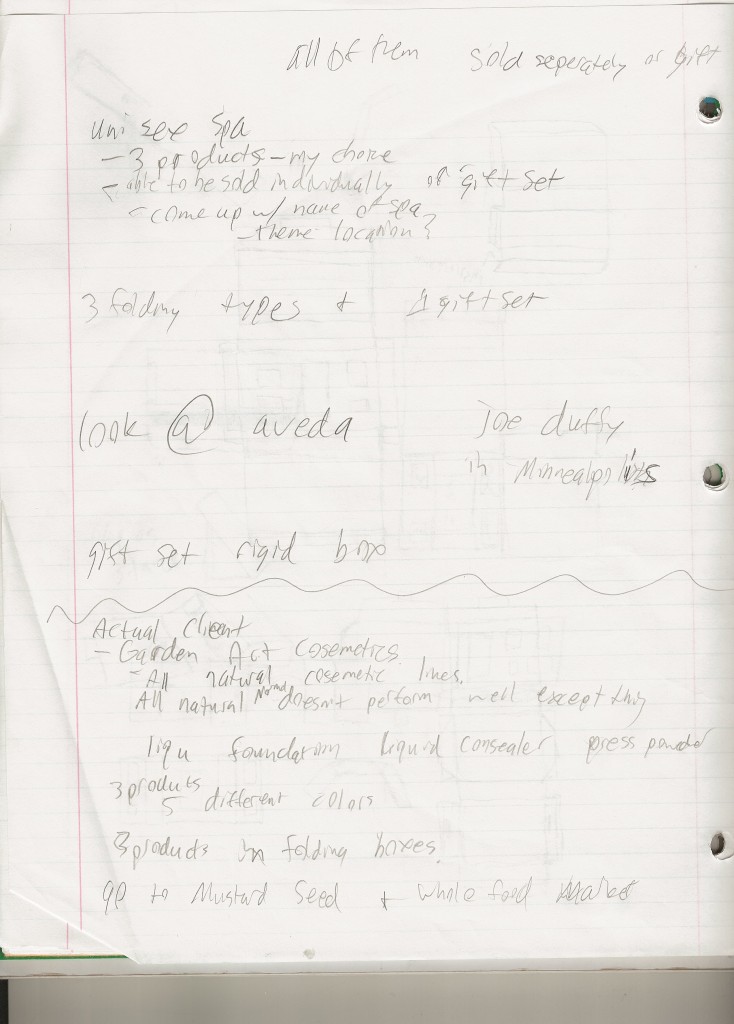 all of them    sold seperately or gift
uni sex spa
- 3 products - my choice
- able to be sold individually or gift set
- come up w/ name of spa
- theme location?
3 folding types + 1 gift set
look @ aveda    joe duffy
in Minnealpolis
gift set rigid box
Actual Client
- Garden Act Cosemetics
- All natural cosemetic lines.
All natural Normal doesn't perform well except this
liqu foundation liquid consealer press powder
3 produts
5 different colors
3 products in folding boxes.
go to Mustard Seed + whole food market